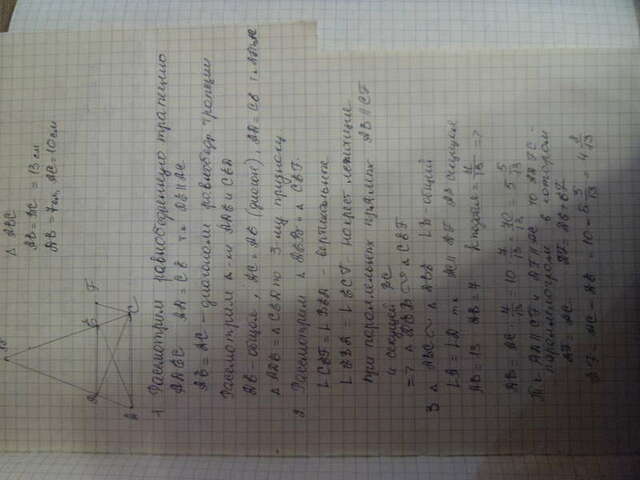 В
Δ ABC
AB = BC = 13 см
DB = 7 см, AC = 10 см
D E F
A C
1 Рассмотрим равнобедренную трапецию
ADEC AD = CE т.к DE || AC
AE = DC - диагонали равнобедр трапеции
Рассмотрим Δ-ки ADE и CED
DE - общая, DC = AE (диагон), AD = CE
Δ ADE = Δ CED по 3-му признаку
2. Рассмотрим Δ DEB и Δ CEF.
∠CEF = ∠BED - вертикальные
∠DBE = ∠ECF - накрест лежащие
при параллельных прямых AB || CF
и секущей BC
=> Δ DEB ∾ Δ CEF
3 Δ ABC ∾ Δ DBE ∠B - общий
∠A = ∠D т.к AC || DF AB секущая
AB = 13 DB = 7 k подобия = 7/13 =>
DE = AC · 7/13 = 10 · 7/13 = 70/13 = 5 5/13
Т.к AD || CF и DF || AC то ADFC -
параллелограм в котором
DF = AC DF = DE + EF
EF = AC - DE = 10 - 5 5/13 = 4 8/13